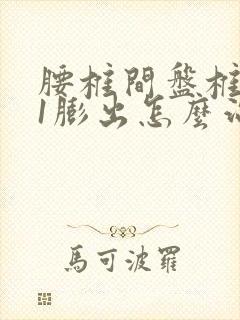 腰椎間盤椎
1膨出怎麼
馬可波羅